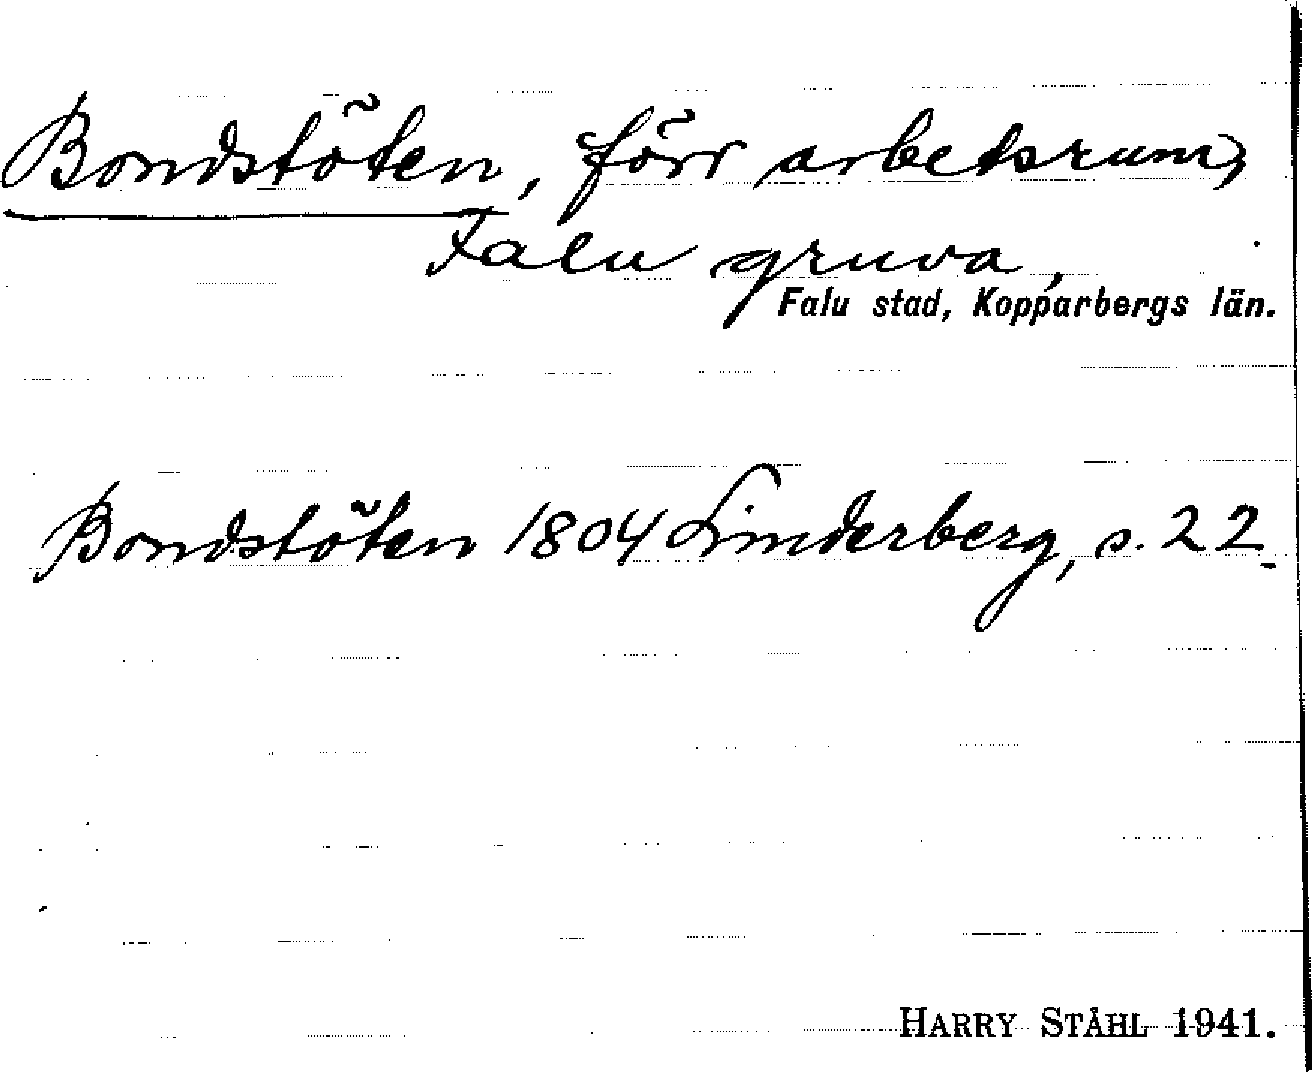 Bondstöten, förr arbetsrum,
Falu gruva,
Falu stad, Kopparbergs län.
Bondstöten 1804 Linderberg, s. 22.
HARRY STÅHL 1941.